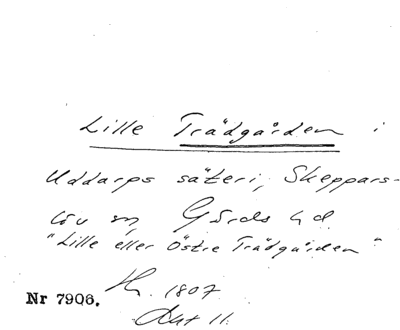 Lille Trädgården i
Uddarps säteri, Skeppars-
löv sn, Gärds hd.
"Lille eller Östre Trädgården"
Hr. 1807
Akt 11.
Nr 7906.